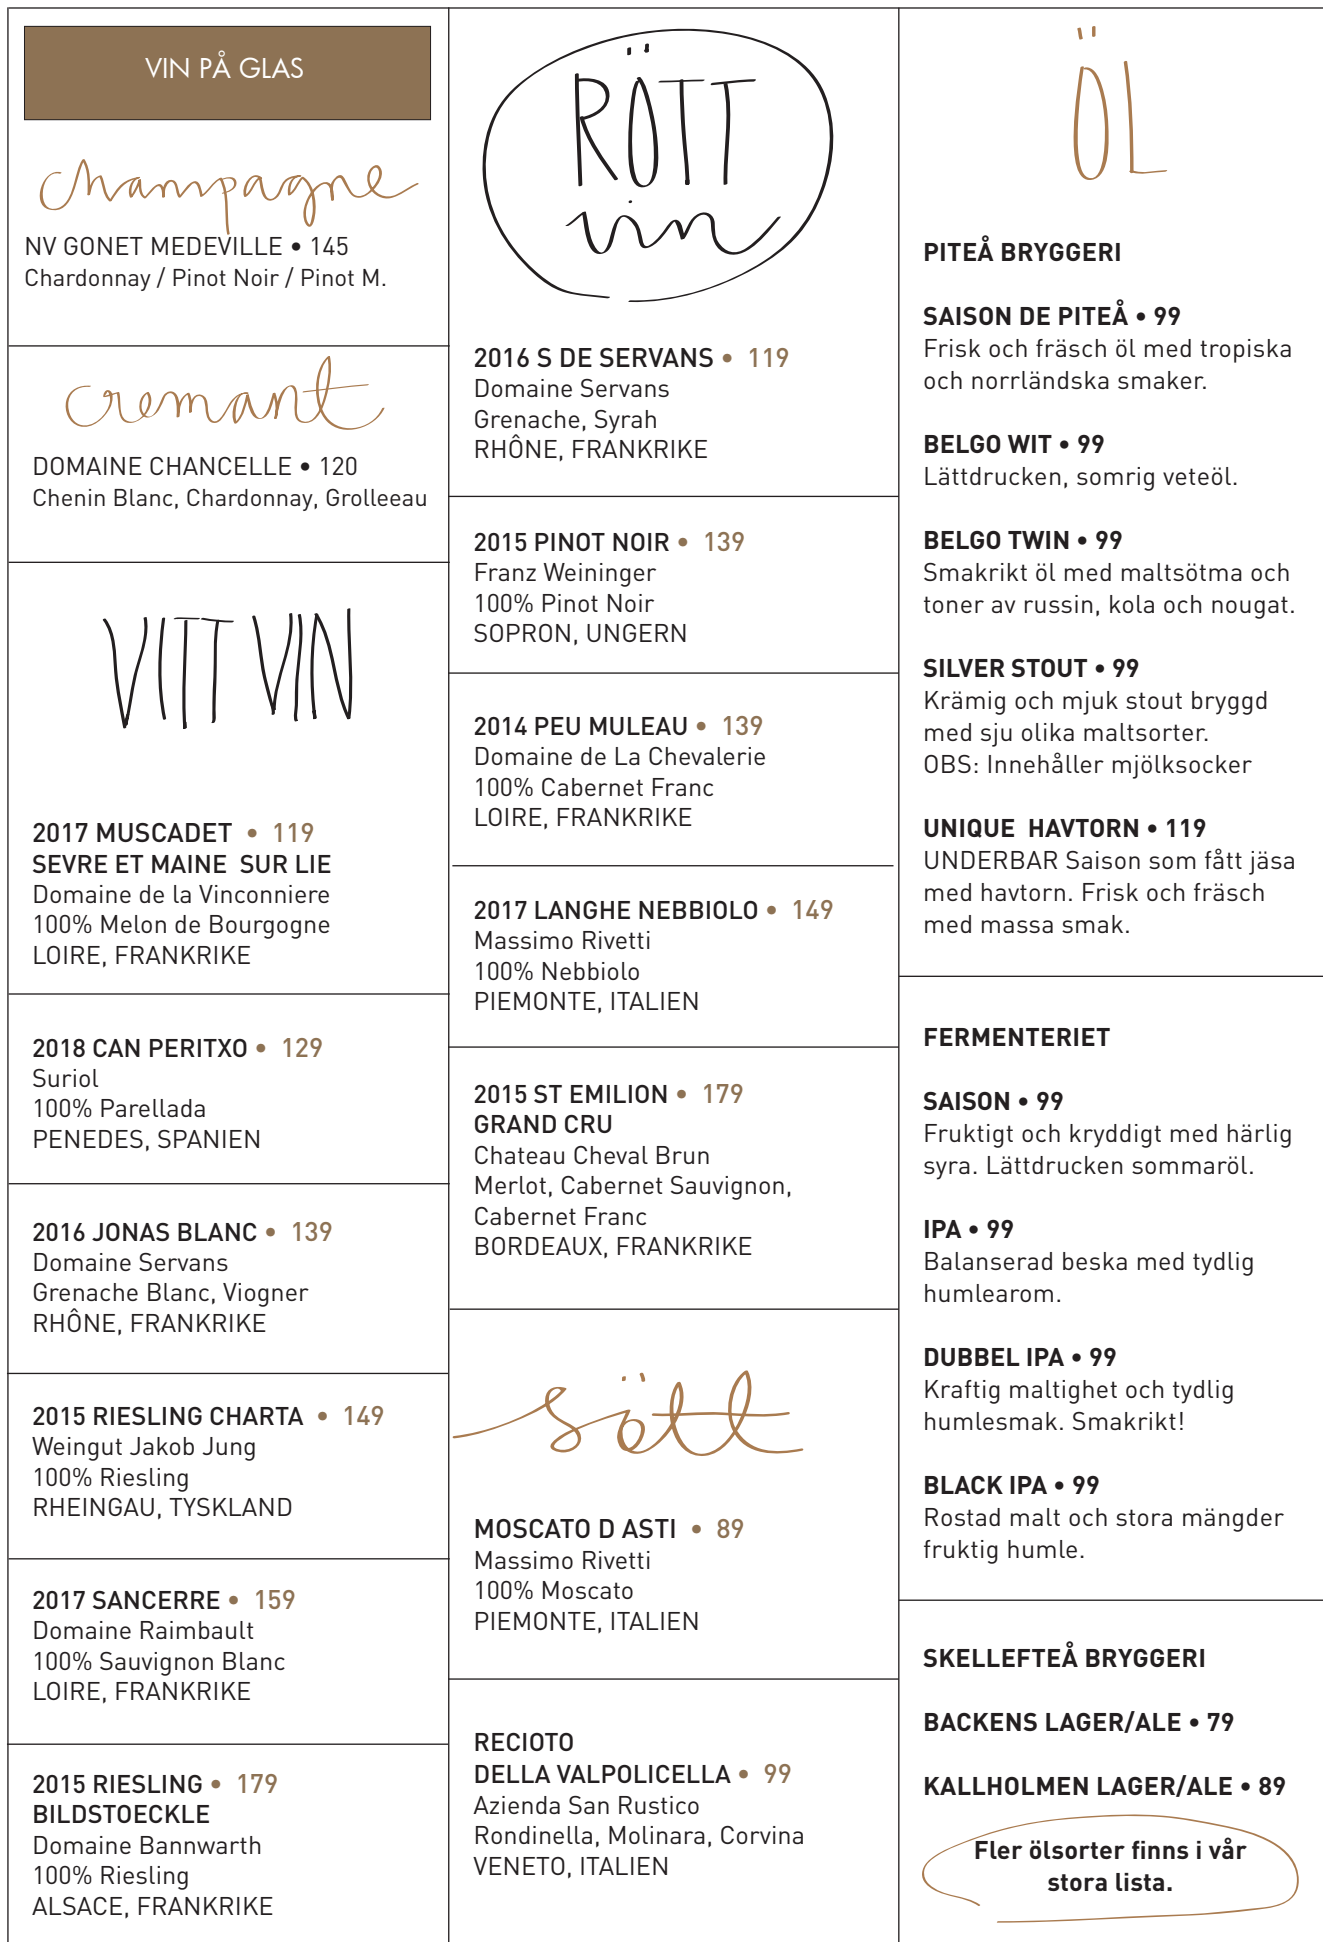 VIN PÅ GLAS
champagne
NV GONET MEDEVILLE • 145
Chardonnay / Pinot Noir / Pinot M.
cremant
DOMAINE CHANCELLE • 120
Chenin Blanc, Chardonnay, Grolleeau
VITT VIN
2017 MUSCADET • 119
SEVRE ET MAINE SUR LIE
Domaine de la Vinconniere
100% Melon de Bourgogne
LOIRE, FRANKRIKE
2018 CAN PERITXO • 129
Suriol
100% Parellada
PENEDES, SPANIEN
2016 JONAS BLANC • 139
Domaine Servans
Grenache Blanc, Viogner
RHÔNE, FRANKRIKE
2015 RIESLING CHARTA • 149
Weingut Jakob Jung
100% Riesling
RHEINGAU, TYSKLAND
2017 SANCERRE • 159
Domaine Raimbault
100% Sauvignon Blanc
LOIRE, FRANKRIKE
2015 RIESLING • 179
BILDSTOECKLE
Domaine Bannwarth
100% Riesling
ALSACE, FRANKRIKE
RÖTT
vin
2016 S DE SERVANS • 119
Domaine Servans
Grenache, Syrah
RHÔNE, FRANKRIKE
2015 PINOT NOIR • 139
Franz Weininger
100% Pinot Noir
SOPRON, UNGERN
2014 PEU MULEAU • 139
Domaine de La Chevalerie
100% Cabernet Franc
LOIRE, FRANKRIKE
2017 LANGHE NEBBIOLO • 149
Massimo Rivetti
100% Nebbiolo
PIEMONTE, ITALIEN
2015 ST EMILION • 179
GRAND CRU
Chateau Cheval Brun
Merlot, Cabernet Sauvignon,
Cabernet Franc
BORDEAUX, FRANKRIKE
sött
MOSCATO D ASTI • 89
Massimo Rivetti
100% Moscato
PIEMONTE, ITALIEN
RECIOTO
DELLA VALPOLICELLA • 99
Azienda San Rustico
Rondinella, Molinara, Corvina
VENETO, ITALIEN
ÖL
PITEÅ BRYGGERI
SAISON DE PITEÅ • 99
Frisk och fräsch öl med tropiska
och norrländska smaker.
BELGO WIT • 99
Lättdrucken, somrig veteöl.
BELGO TWIN • 99
Smakrikt öl med maltsötma och
toner av russin, kola och nougat.
SILVER STOUT • 99
Krämig och mjuk stout bryggd
med sju olika maltsorter.
OBS: Innehåller mjölksocker
UNIQUE HAVTORN • 119
UNDERBAR Saison som fått jäsa
med havtorn. Frisk och fräsch
med massa smak.
FERMENTERIET
SAISON • 99
Fruktigt och kryddigt med härlig
syra. Lättdrucken sommaröl.
IPA • 99
Balanserad beska med tydlig
humlearom.
DUBBEL IPA • 99
Kraftig maltighet och tydlig
humlesmak. Smakrikt!
BLACK IPA • 99
Rostad malt och stora mängder
fruktig humle.
SKELLEFTEÅ BRYGGERI
BACKENS LAGER/ALE • 79
KALLHOLMEN LAGER/ALE • 89
Fler ölsorter finns i vår
stora lista.